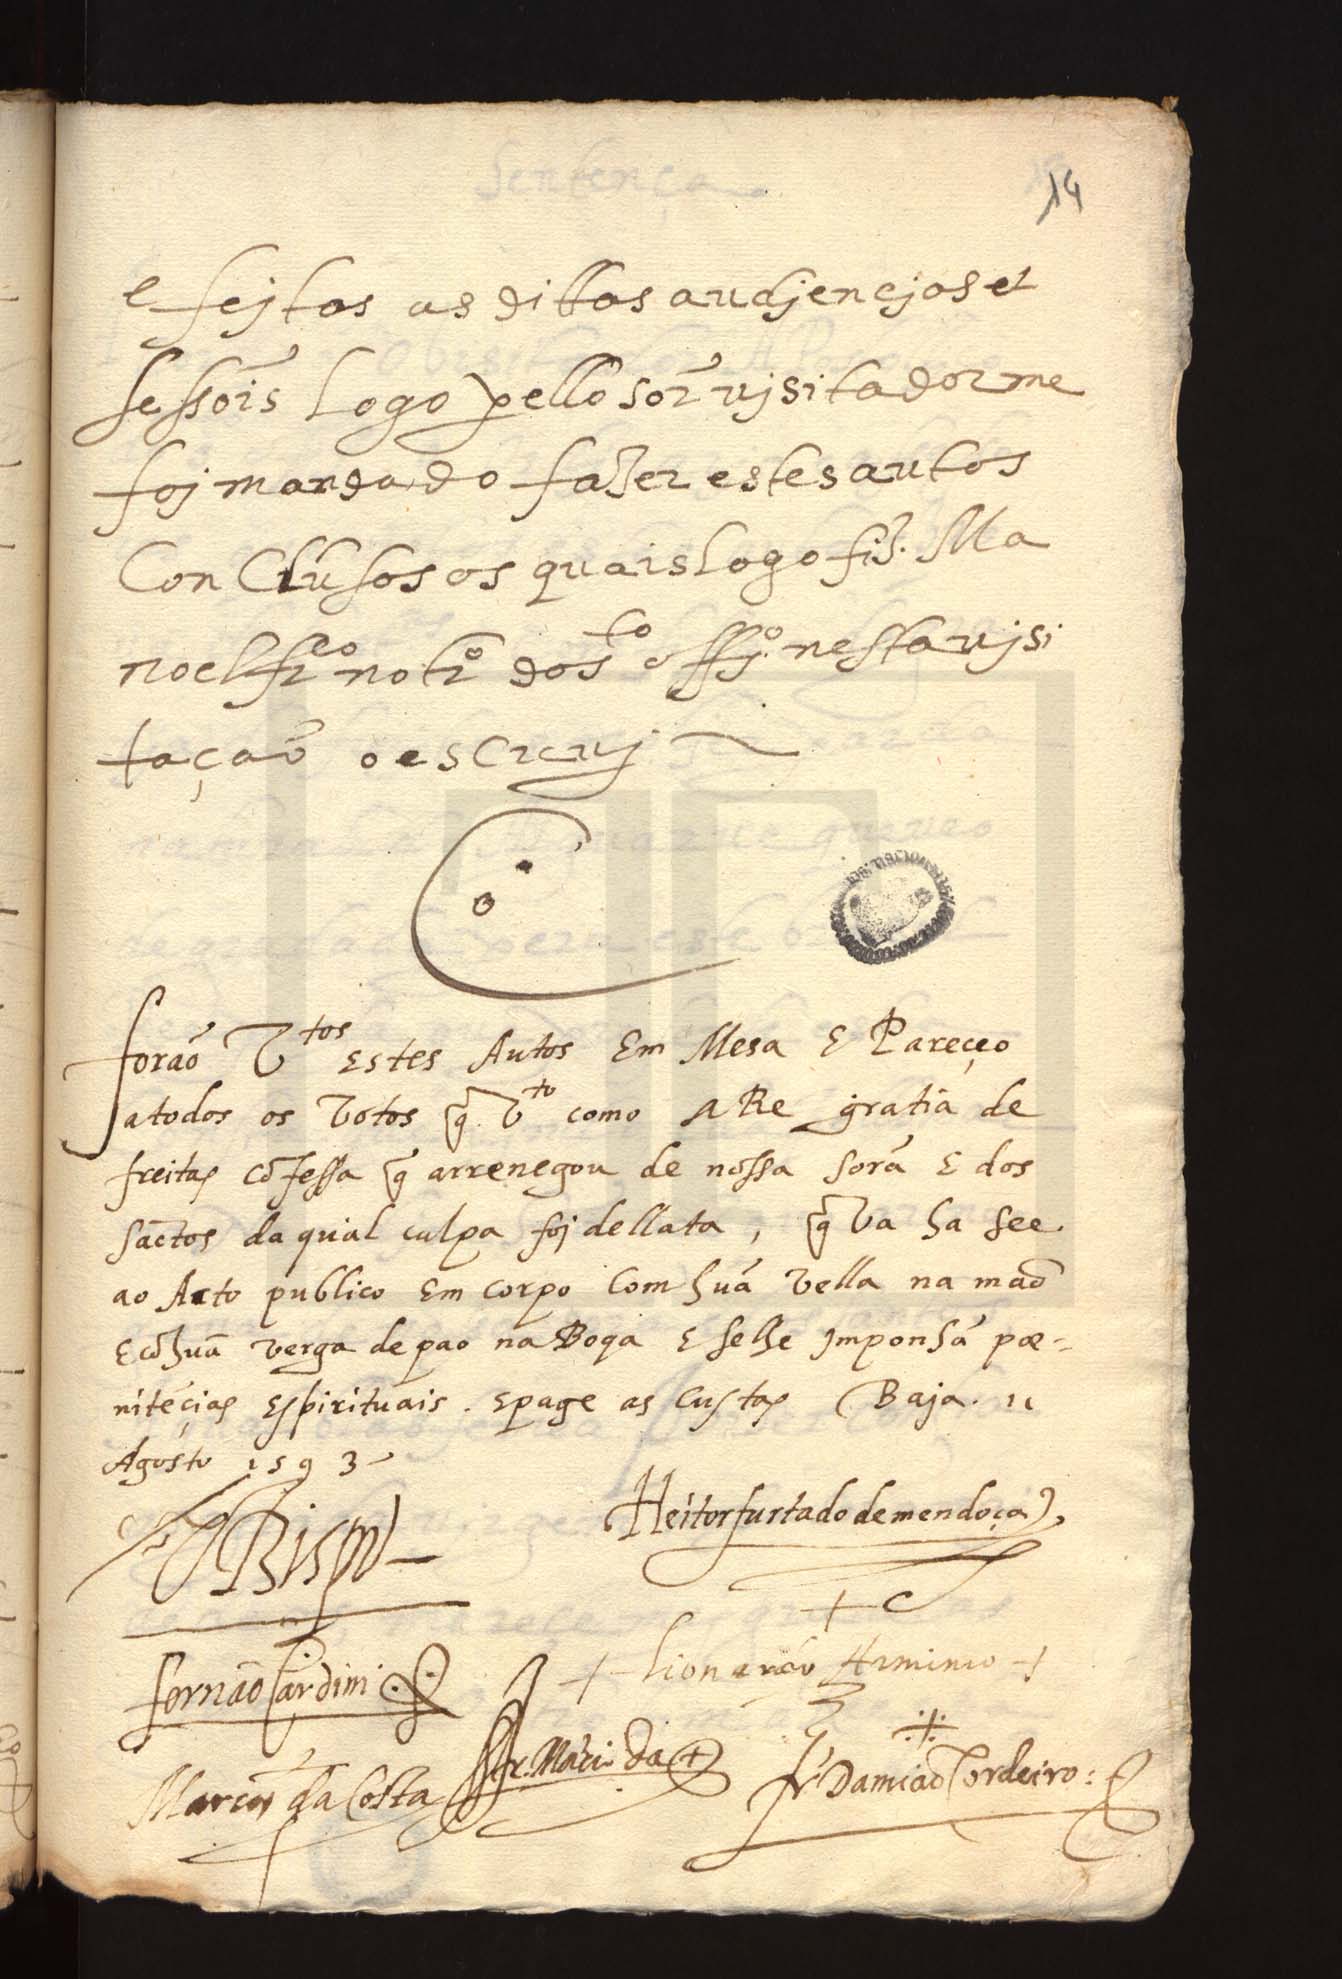 14
e feitas as dittas audjencjas et
sessõis logo pello sor̃ vjsitador me
foj mandado fazer estes autos
Conclusos os quais logo fiz. Ma
noel frco notro do sto offjo. nesta vjsi
tação o escrevj
Forão vtos Estes Autos Em Mesa E Pareçeo
a todos os votos q̃ vto como a Re gratia de
freitas cõfessa q̃ arrenegou de nossa sorã E dos
sãctos da qual culpa foj dellata, q̃ va ha see
ao Acto publico Em corpo Com huã vella na maõ
E cõ huã verga de pao na Boqa E selhe jmponhã pœ-
nitẽçias Espirituais. E page as Custas Baja. 11
Agosto 1593
Bispo
Heitor furtado de mendoça
Fernão Cardim
Lionardo Arminio
Marcos da Costa
Damiaõ Cordeiro